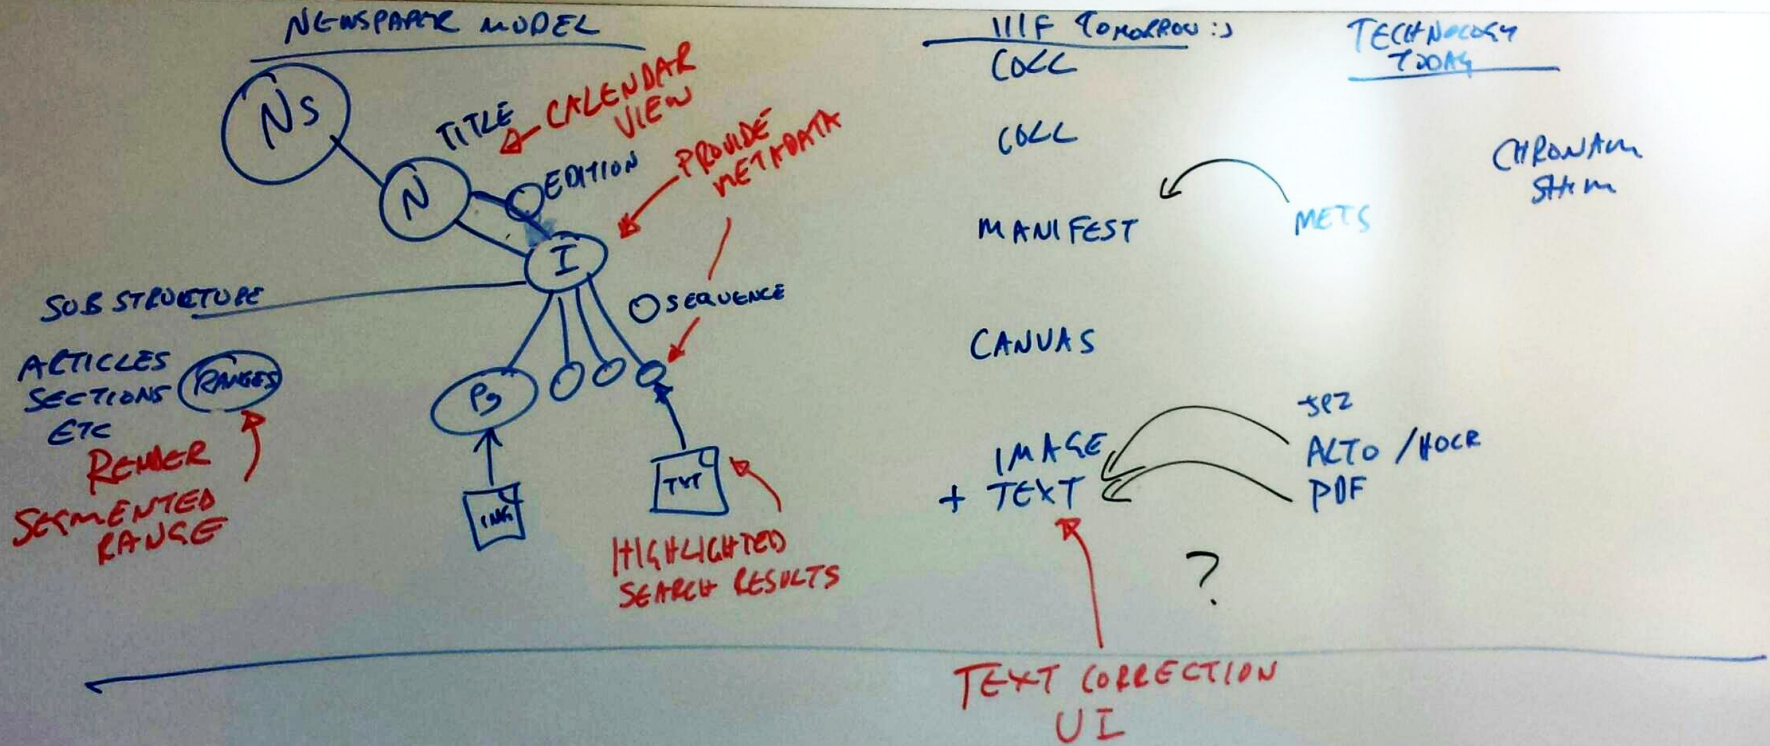 NEWSPAPER MODEL
NS
TITLE
CALENDAR
VIEW
N
EDITION
PROVIDE
METADATA
I
SUB STRUCTURE
SEQUENCE
ARTICLES
SECTIONS
ETC
RANGES
RENDER
SEGMENTED
RANGE
Pg
IMG
TXT
HIGHLIGHTED
SEARCH RESULTS
IIIF TOMORROW :)
COLL
COLL
MANIFEST
CANVAS
IMAGE
+ TEXT
?
TEXT CORRECTION
UI
TECHNOLOGY
TODAY
CHRONAM
SHIM
METS
JP2
ALTO / HOCR
PDF